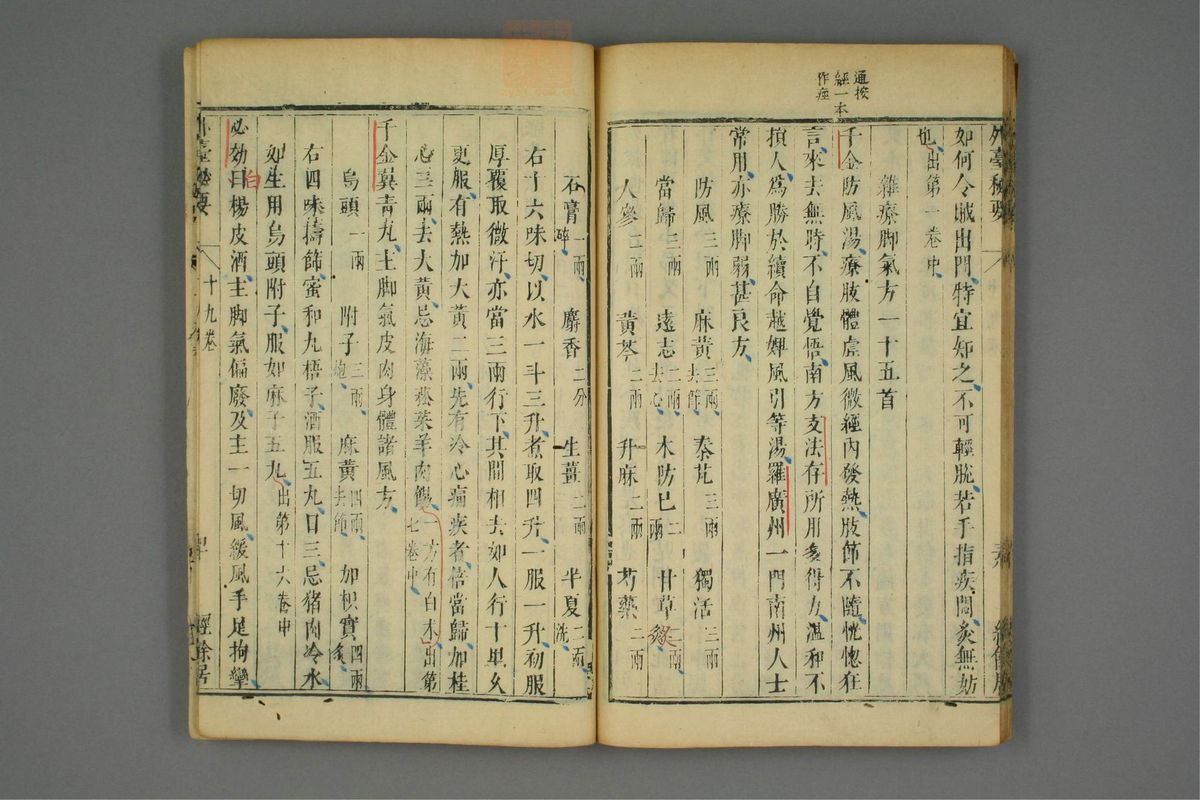 通按
經一本
作痙
外臺秘要
如何令賊出門特宜知之不可輕脫若手指疾悶灸無妨
也出第一卷中
雜療脚氣方一十五首
千金防風湯療肢體虛風微經內發熱肢節不隨恍惚狂
言來去無時不自覺悟南方支法存所用多得力温和不
損人爲勝於續命越婢風引等湯羅廣州一門南州人士
常用亦療脚弱甚良方
防風三兩 麻黃三兩去節 秦芃三兩 獨活三兩
當歸二兩 遠志二兩去心 木防巳二兩 甘草二兩炙
人參二兩 黃芩二兩 升麻二兩 芍藥二兩
石膏一兩碎 麝香二分 生薑二兩 半夏二兩洗
右十六味切以水一斗三升煮取四升一服一升初服
厚覆取微汗亦當三兩行下其間相去如人行十里久
更服有熱加大黃二兩先有冷心痛疾者倍當歸加桂
心三兩去大黃忌海藻菘菜羊肉餳一方有白木出第七卷中
千金翼青丸主脚氣皮肉身體諸風方
烏頭一兩 附子三兩炮 麻黃四兩去節 加枳實四兩炙
右四味擣篩蜜和丸梧子酒服五丸日三忌猪肉冷水
如生用烏頭附子服如麻子五丸出第十六卷中
必効白楊皮酒主脚氣偏廢及主一切風緩風手足拘攣
外臺秘要 十九卷 經餘居